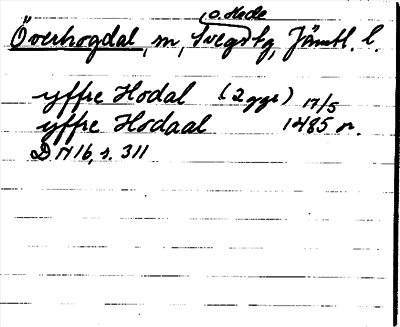 o. Hede
Överhogdal, m, Svegs tg, Jämtl. l.
yffre Hodal (2 ggr) 17/5
yffre Hodaal 1485 or.
DN 16, s. 311